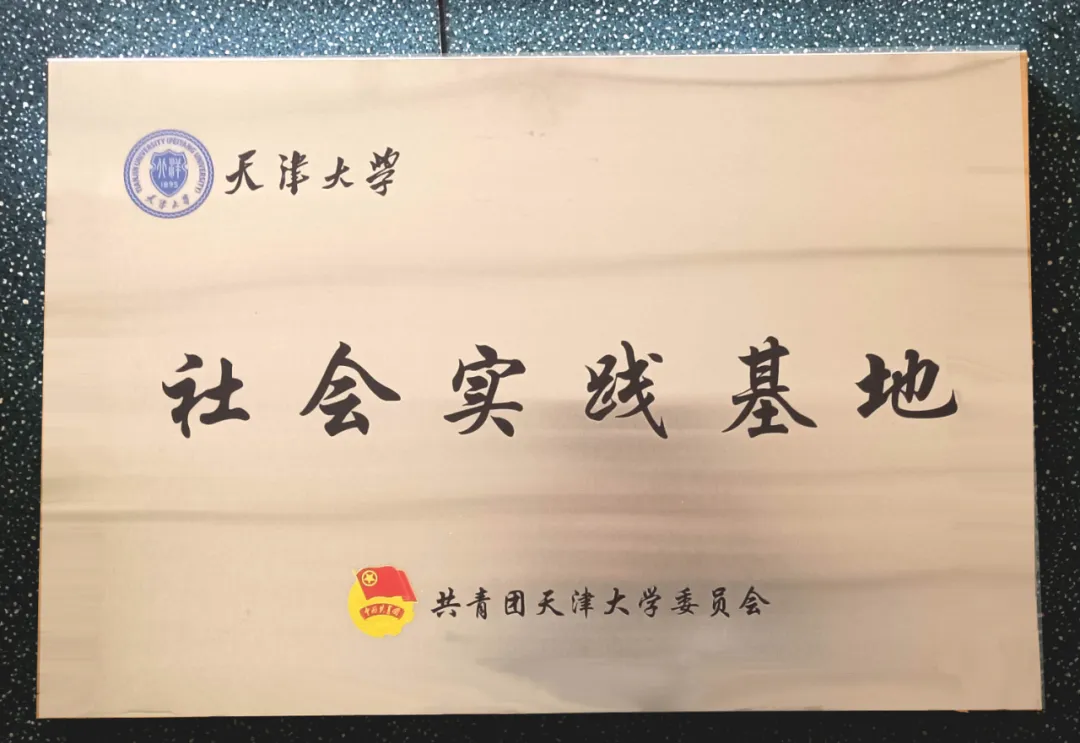 TIANJIN UNIVERSITY (PEIYANG UNIVERSITY)
北洋
1895
天津大学
天津大学
社会实践基地
中国共青团
共青团天津大学委员会